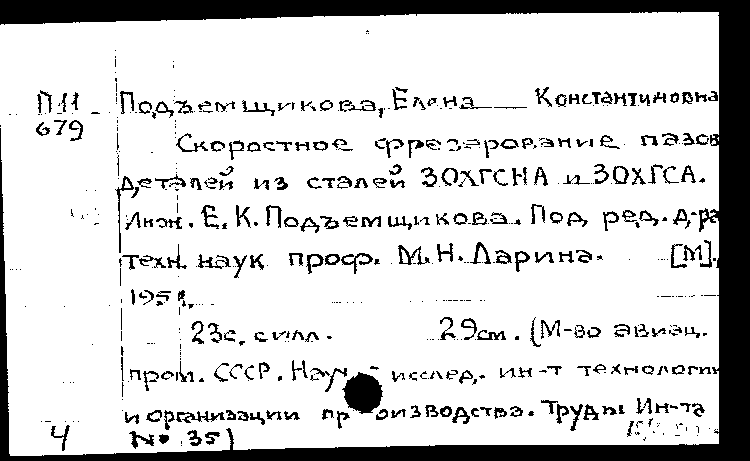 П11 Подъемщикова, Елена Константиновна
679
Скоростное фрезерование пазов
деталей из сталей 30ХГСНА и 30ХГСА.
Инж. Е. К. Подъемщикова. Под ред. д-ра
техн. наук проф. М. Н. Ларина. [М].,
195
23с. с илл. 29см. (М-во авиац.
пром. СССР. Науч.- исслед. ин-т технологии
и организации производства. Труды Ин-та
4 № 35)